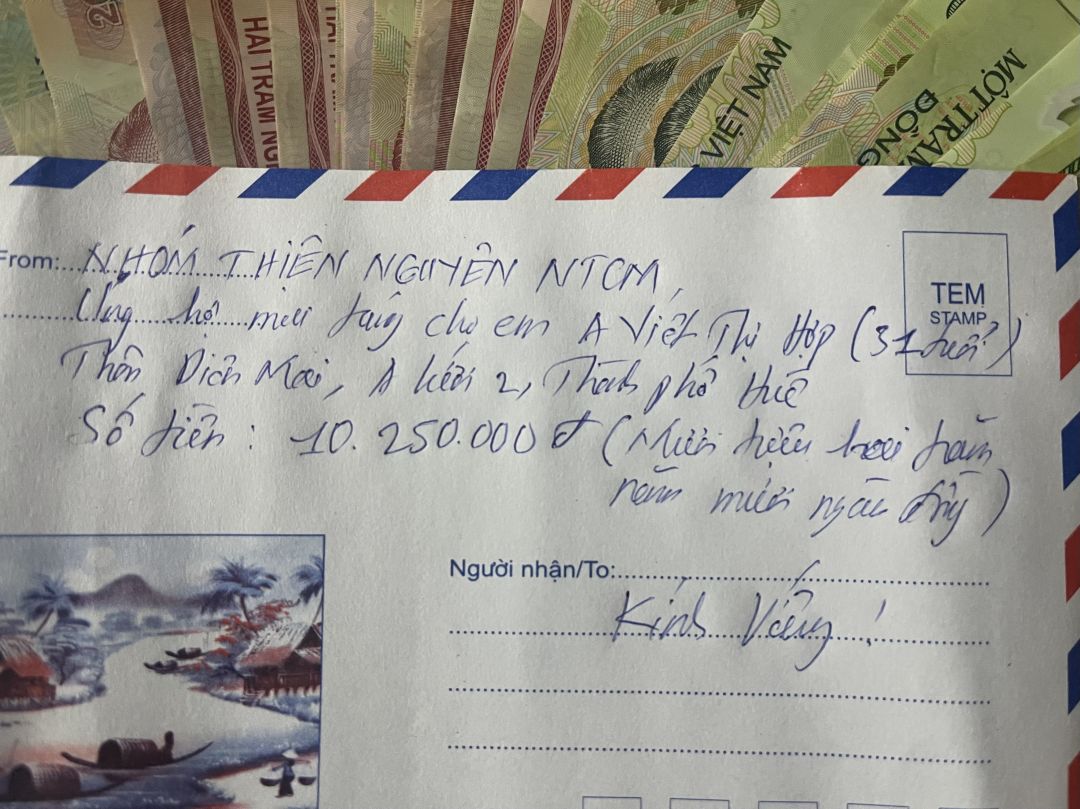 HAI TRĂM NG
VIỆT NAM
MỘT TRĂM
ĐỒNG
From: NHÓM THIỆN NGUYỆN NTCM,
Ủng hộ mai táng cho em A Viết Thị Hợp (31 tuổi)
Thôn Diên Mai, A Lưới 2, Thành phố Huế
Số tiền: 10.250.000đ (Mười triệu hai trăm
năm mươi ngàn đồng)
TEM
STAMP
Người nhận/To:
Kính Viếng!